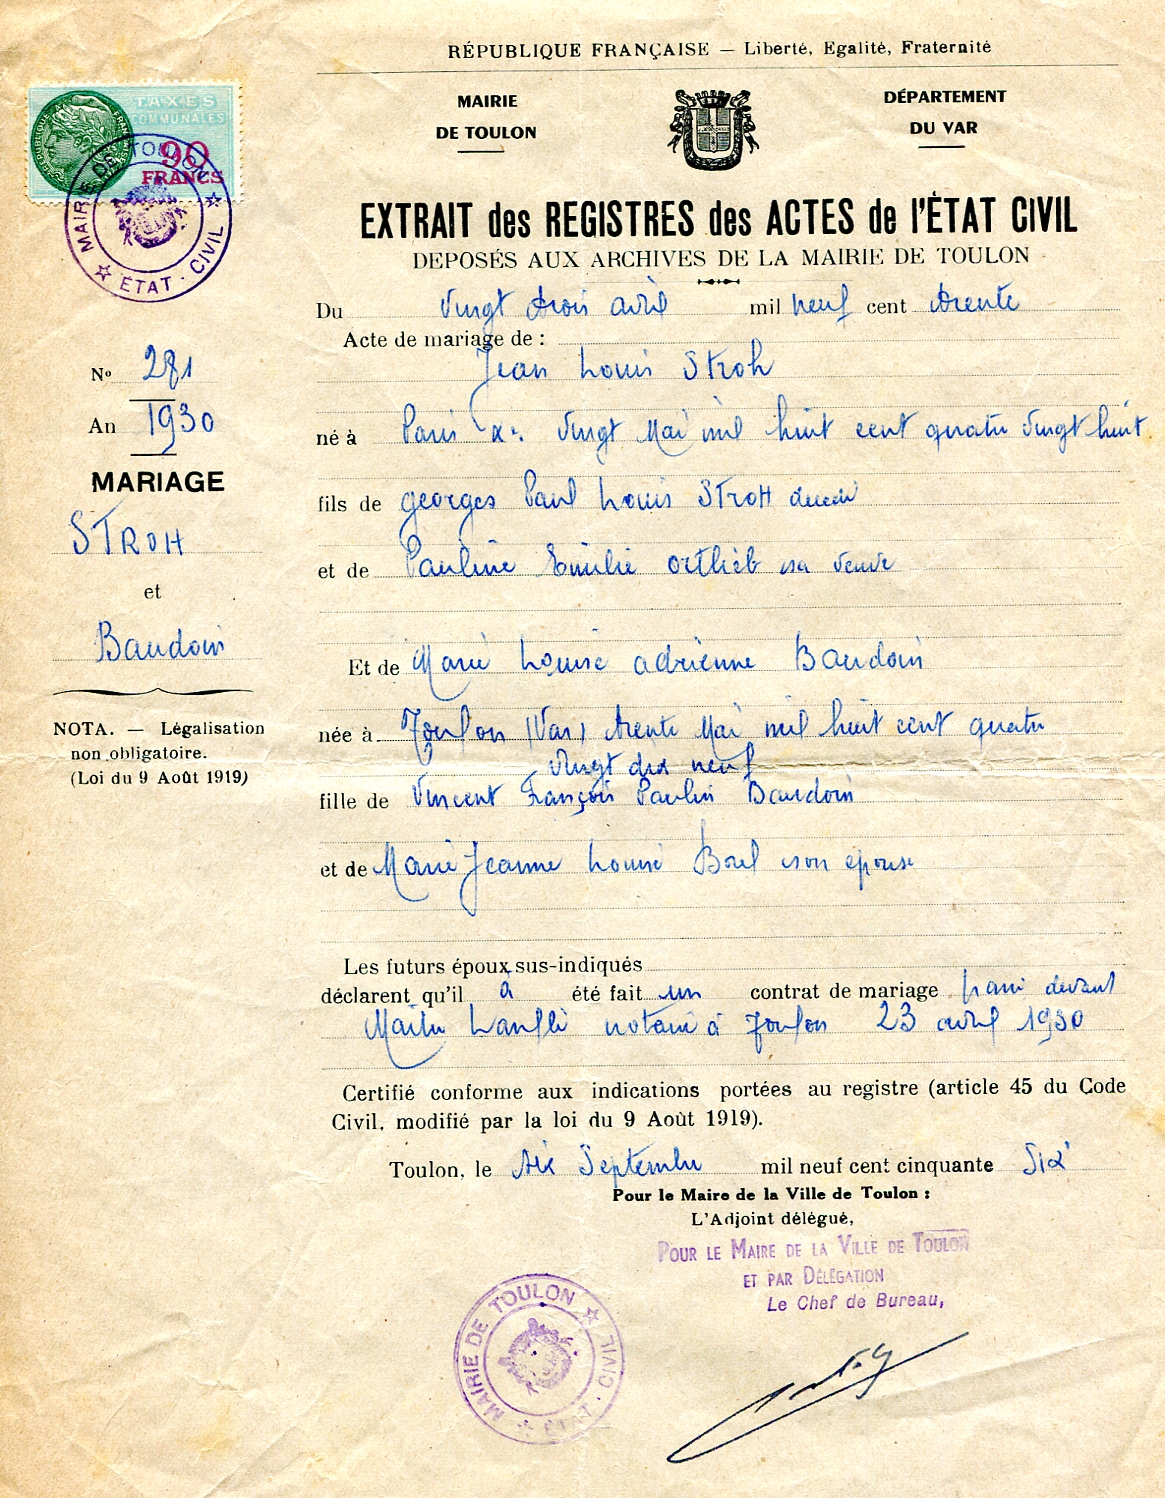 RÉPUBLIQUE FRANÇAISE — Liberté, Egalité, Fraternité
MAIRIE
DE TOULON
DÉPARTEMENT
DU VAR
TAXES
COMMUNALES
90
FRANCS
MAIRIE DE TOULON
ÉTAT - CIVIL
EXTRAIT des REGISTRES des ACTES de l'ÉTAT CIVIL
DEPOSÉS AUX ARCHIVES DE LA MAIRIE DE TOULON
Du Vingt trois avril mil neuf cent trente
Acte de mariage de :
Jean Louis Stroh
né à Paris Xe. Vingt Mai mil huit cent quatre vingt huit
fils de georges Paul Louis STROH décédé
et de Pauline Emilie ortlieb sa veuve
Et de Marie Louise adrienne Baudoin
née à Toulon (Var) trente Mai mil huit cent quatre
vingt dix neuf
fille de Vincent François Paulin Baudoin
et de Marie Jeanne Louise Borel son épouse
Les futurs époux sus-indiqués
déclarent qu'il a été fait un contrat de mariage devant
Maître notaire à Toulon 23 avril 1930
Certifié conforme aux indications portées au registre (article 45 du Code
Civil, modifié par la loi du 9 Août 1919).
Toulon, le dix Septembre mil neuf cent cinquante Six
Pour le Maire de la Ville de Toulon :
L'Adjoint délégué,
POUR LE MAIRE DE LA VILLE DE TOULON
ET PAR DÉLÉGATION
Le Chef de Bureau,
MAIRIE DE TOULON
ÉTAT - CIVIL
No 281
An 1930
MARIAGE
STROH
et
Baudoin
NOTA. — Légalisation
non obligatoire.
(Loi du 9 Août 1919)